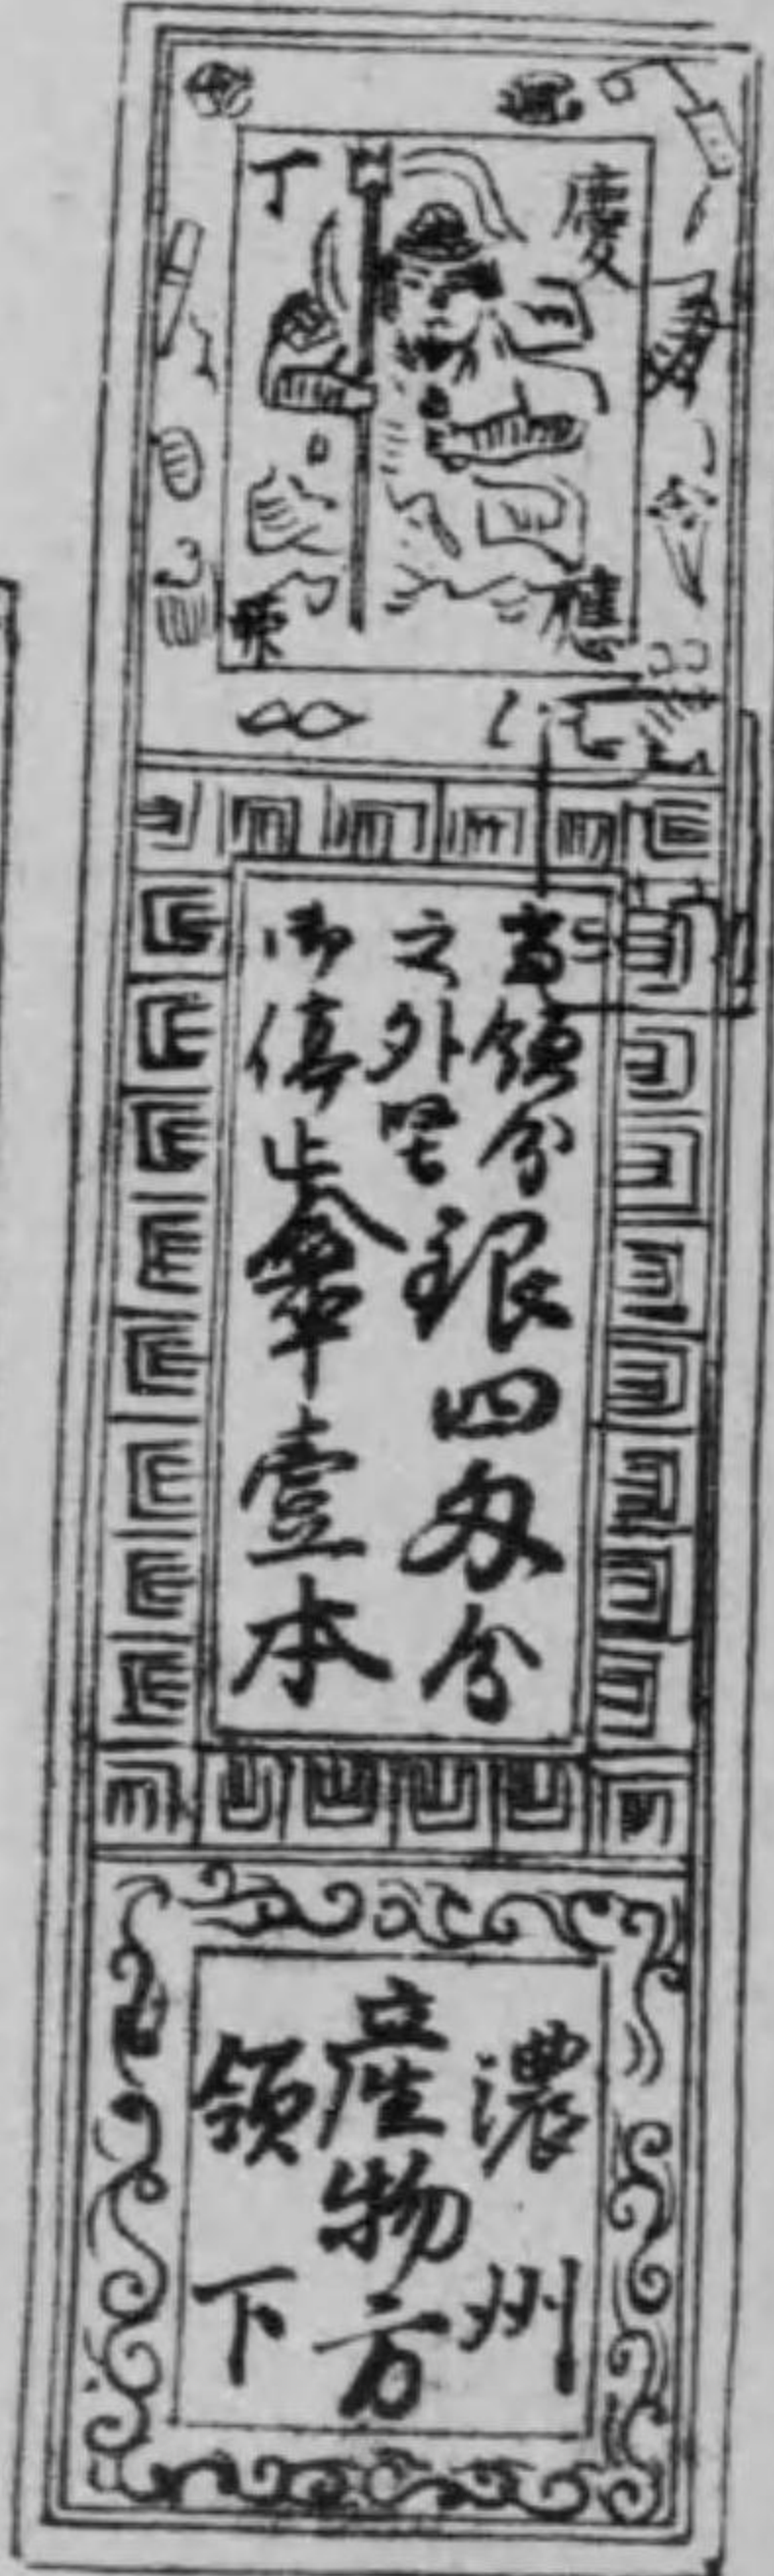 慶應
丁
當領分
之外堅
御停止
銀四匁分
傘壹本
濃州
産物方
領下